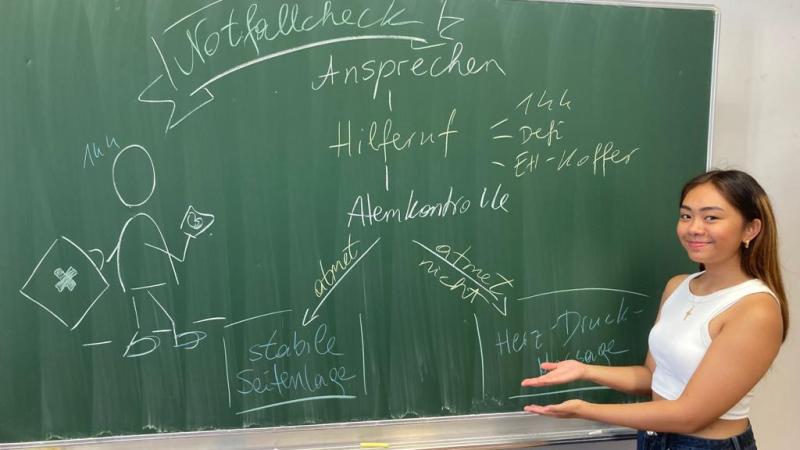 Notfallcheck
Ansprechen
Hilferuf
144
Defi
EH-Koffer
144
Atemkontrolle
atmet
atmet
nicht
stabile
Seitenlage
Herz-Druck-